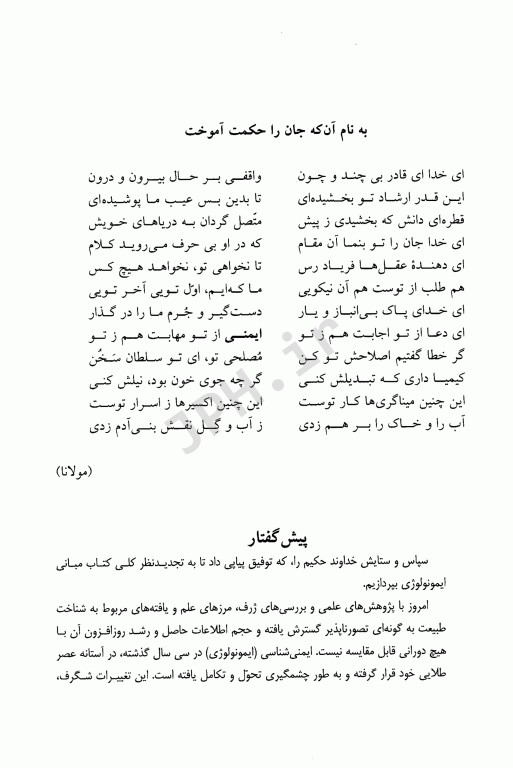 به نام آن‌که جان را حکمت آموخت
ای خدا ای قادر بی چند و چون واقفی بر حال بیرون و درون
این قدر ارشاد تو بخشیده‌ای تا بدین بس عیب ما پوشیده‌ای
قطره‌ای دانش که بخشیدی ز پیش متّصل گردان به دریاهای خویش
ای خدا جان را تو بنما آن مقام که در او بی حرف می‌روید کلام
ای دهندهٔ عقل‌ها فریاد رس تا نخواهی تو، نخواهد هیچ کس
هم طلب از توست هم آن نیکویی ما که‌ایم، اوّل تویی آخر تویی
ای خدای پاک بی‌انباز و یار دست‌گیر و جُرم ما را در گذار
ای دعا از تو اجابت هم ز تو ایمنی از تو مهابت هم ز تو
گر خطا گفتیم اصلاحش تو کن مُصلحی تو، ای تو سلطان سَخُن
کیمیا داری که تبدیلش کنی گر چه جوی خون بود، نیلش کنی
این چنین میناگری‌ها کار توست این چنین اکسیرها ز اسرار توست
آب را و خاک را بر هم زدی ز آب و گل نقش بنی‌آدم زدی
(مولانا)
JPH.ir
پیش‌گفتار
سپاس و ستایش خداوند حکیم را، که توفیق پیاپی داد تا به تجدیدنظر کلی کتاب مبانی
ایمونولوژی بپردازیم.
امروز با پژوهش‌های علمی و بررسی‌های ژرف، مرزهای علم و یافته‌های مربوط به شناخت
طبیعت به گونه‌ای تصورناپذیر گسترش یافته و حجم اطلاعات حاصل و رشد روزافزون آن با
هیچ دورانی قابل مقایسه نیست. ایمنی‌شناسی (ایمونولوژی) در سی سال گذشته، در آستانه عصر
طلایی خود قرار گرفته و به طور چشمگیری تحوّل و تکامل یافته است. این تغییرات شگرف،